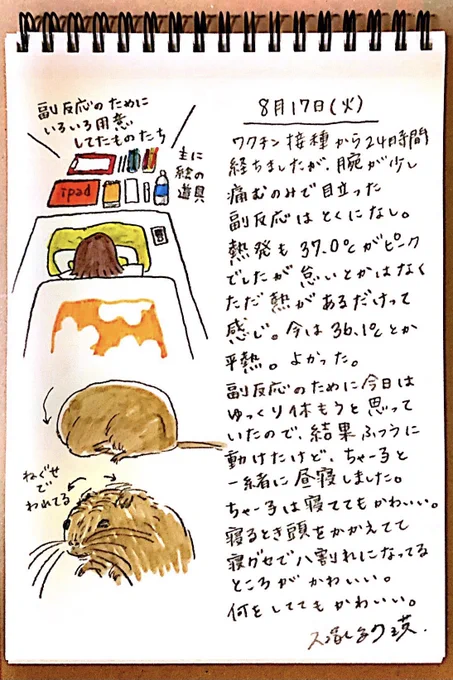 副反応のために
いろいろ用意
してたものたち
主に
絵の
道具
ipad
ねぐせ
で
われてる
8月17日(火)
ワクチン接種から24時間
経ちましたが、腕が少し
痛むのみで目立った
副反応はとくになし。
熱発も37.0℃がピーク
でしたが怠いとかはなく
ただ熱があるだけって
感じ。今は36.1℃とか
平熱。よかった。
副反応のために今日は
ゆっくり休もうと思って
いたので、結果ふつうに
動けたけど、ちゃー子と
一緒に昼寝しました。
ちゃー子は寝ててもかわいい。
寝るとき頭をかかえてて
寝グセで八割れになってる
ところがかわいい。
何をしててもかわいい。